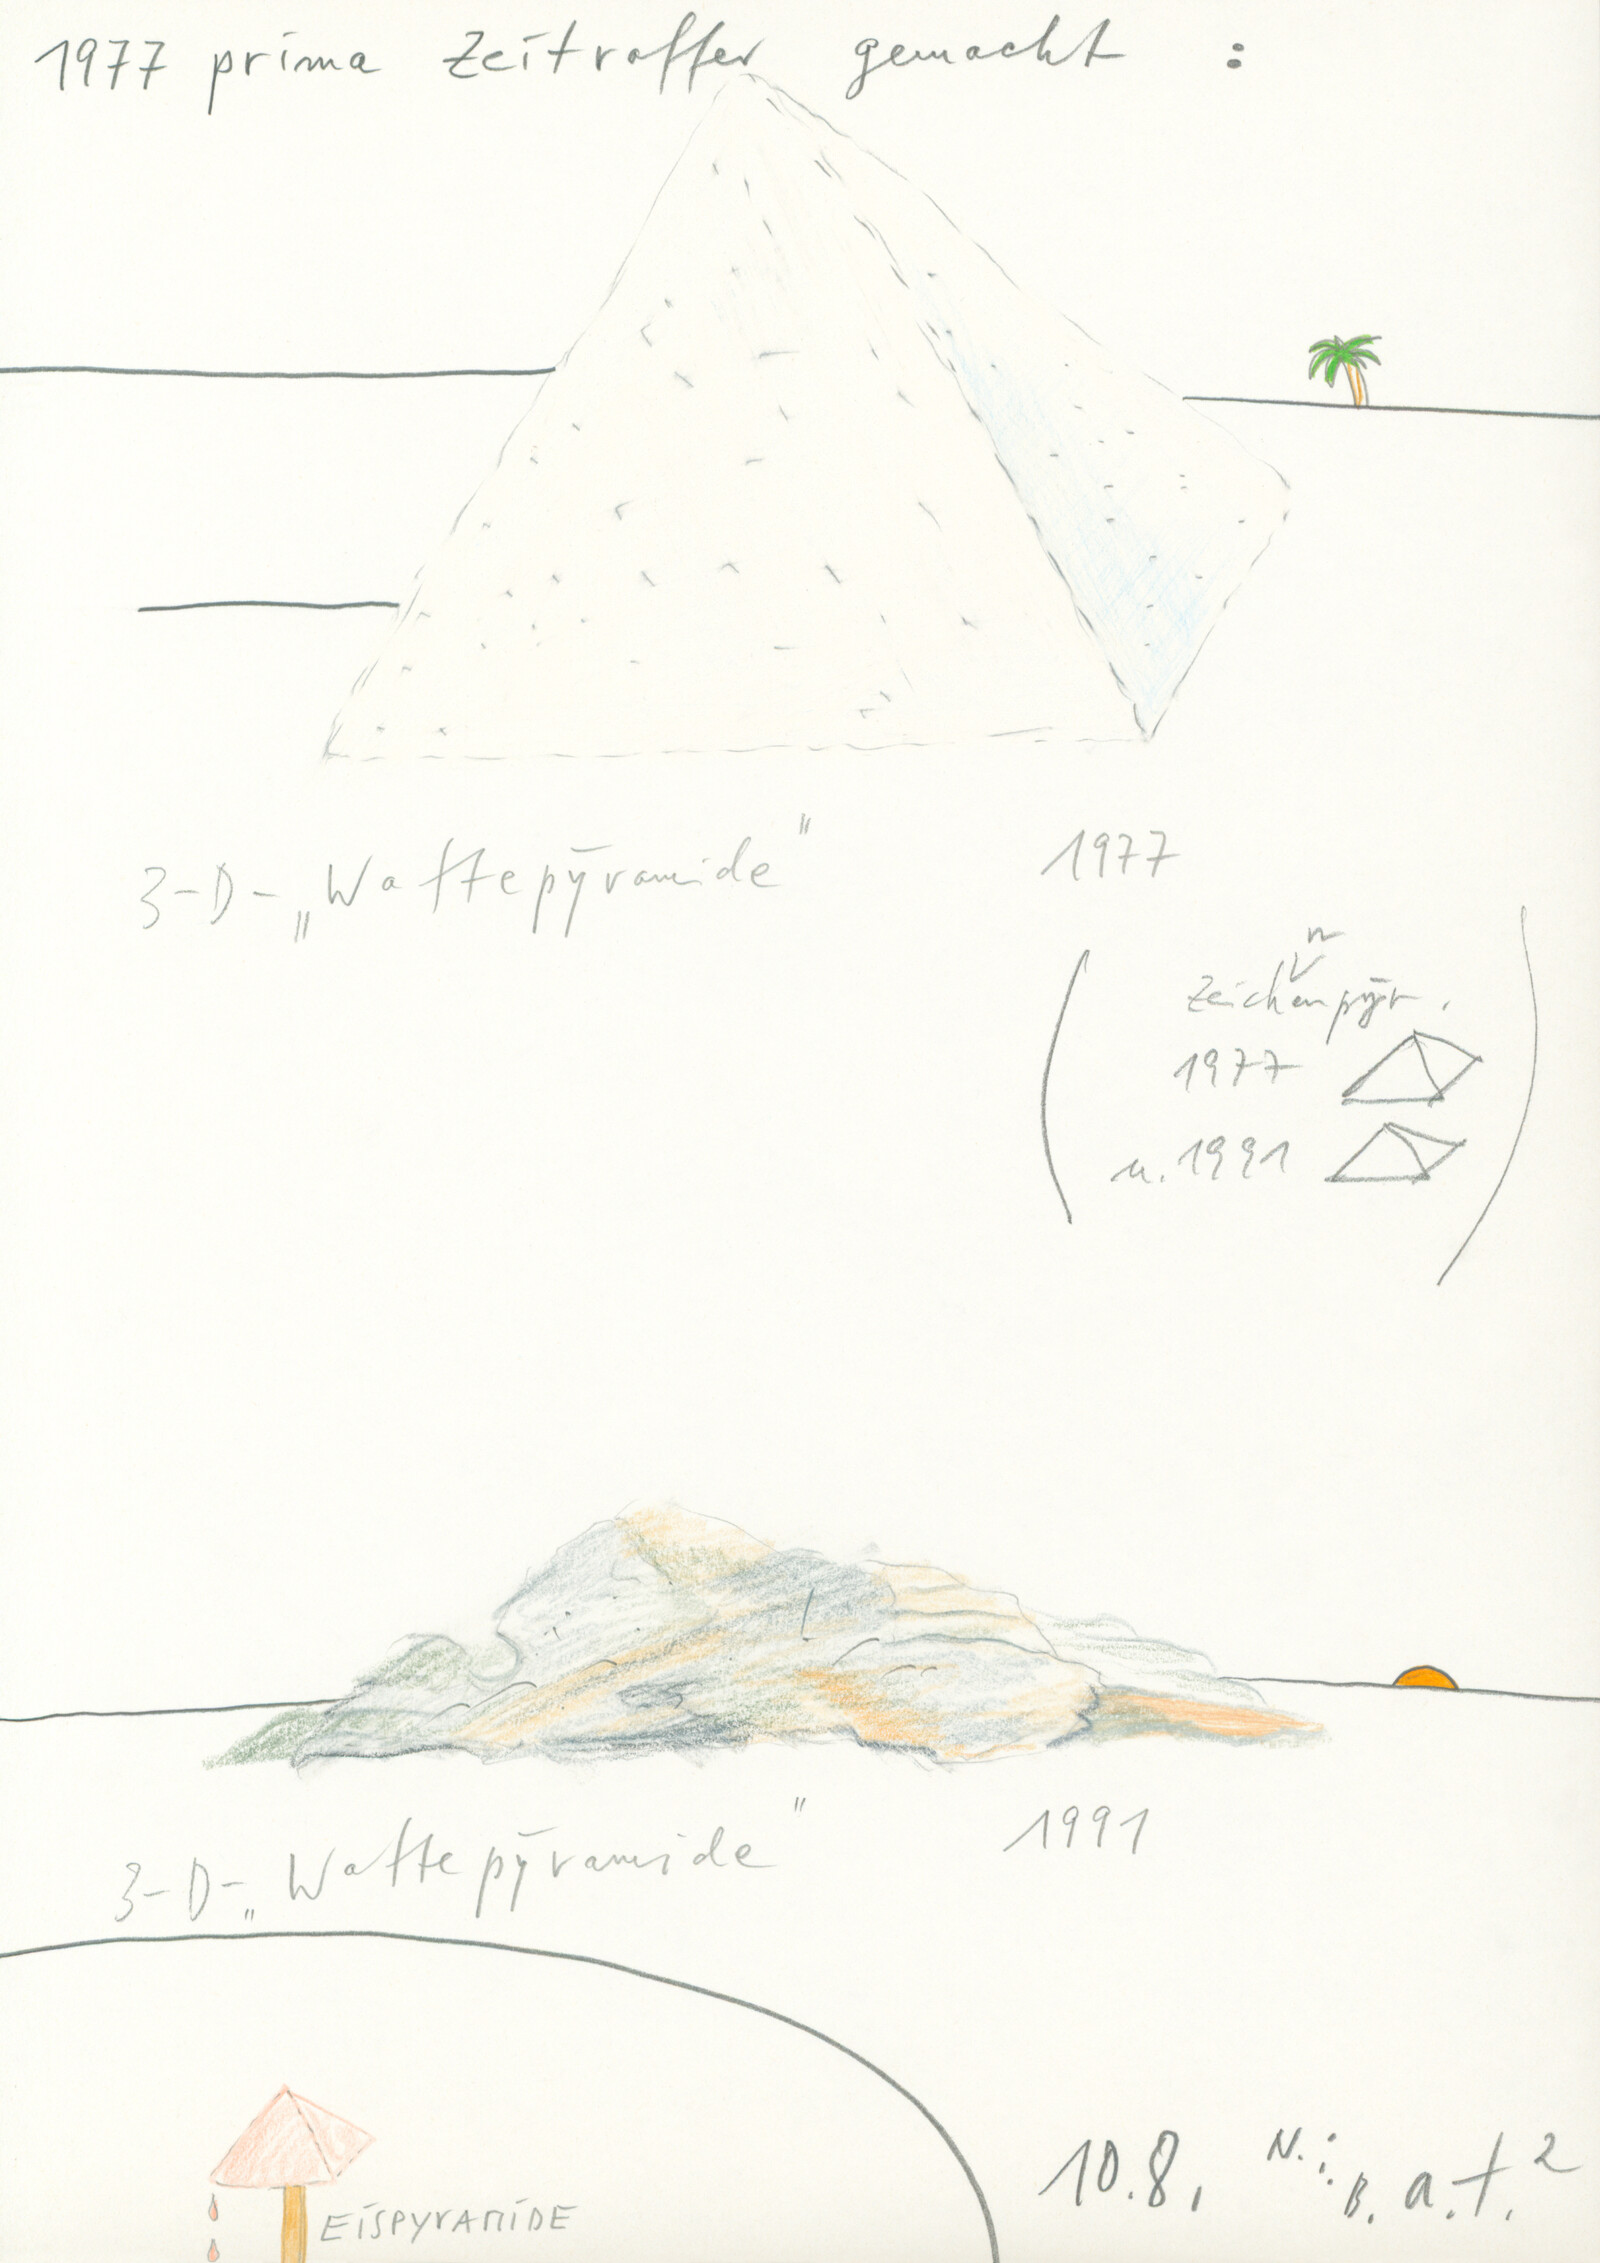 1977 prima Zeitraffer gemacht :
3-D-„Wattepÿramide"
1977
( n
Zeichenpÿr.
1977
u. 1991 )
3-D-„Wattepÿramide"
1991
EiSPYRAMiDE
10.8. N.i.B.a.t.²